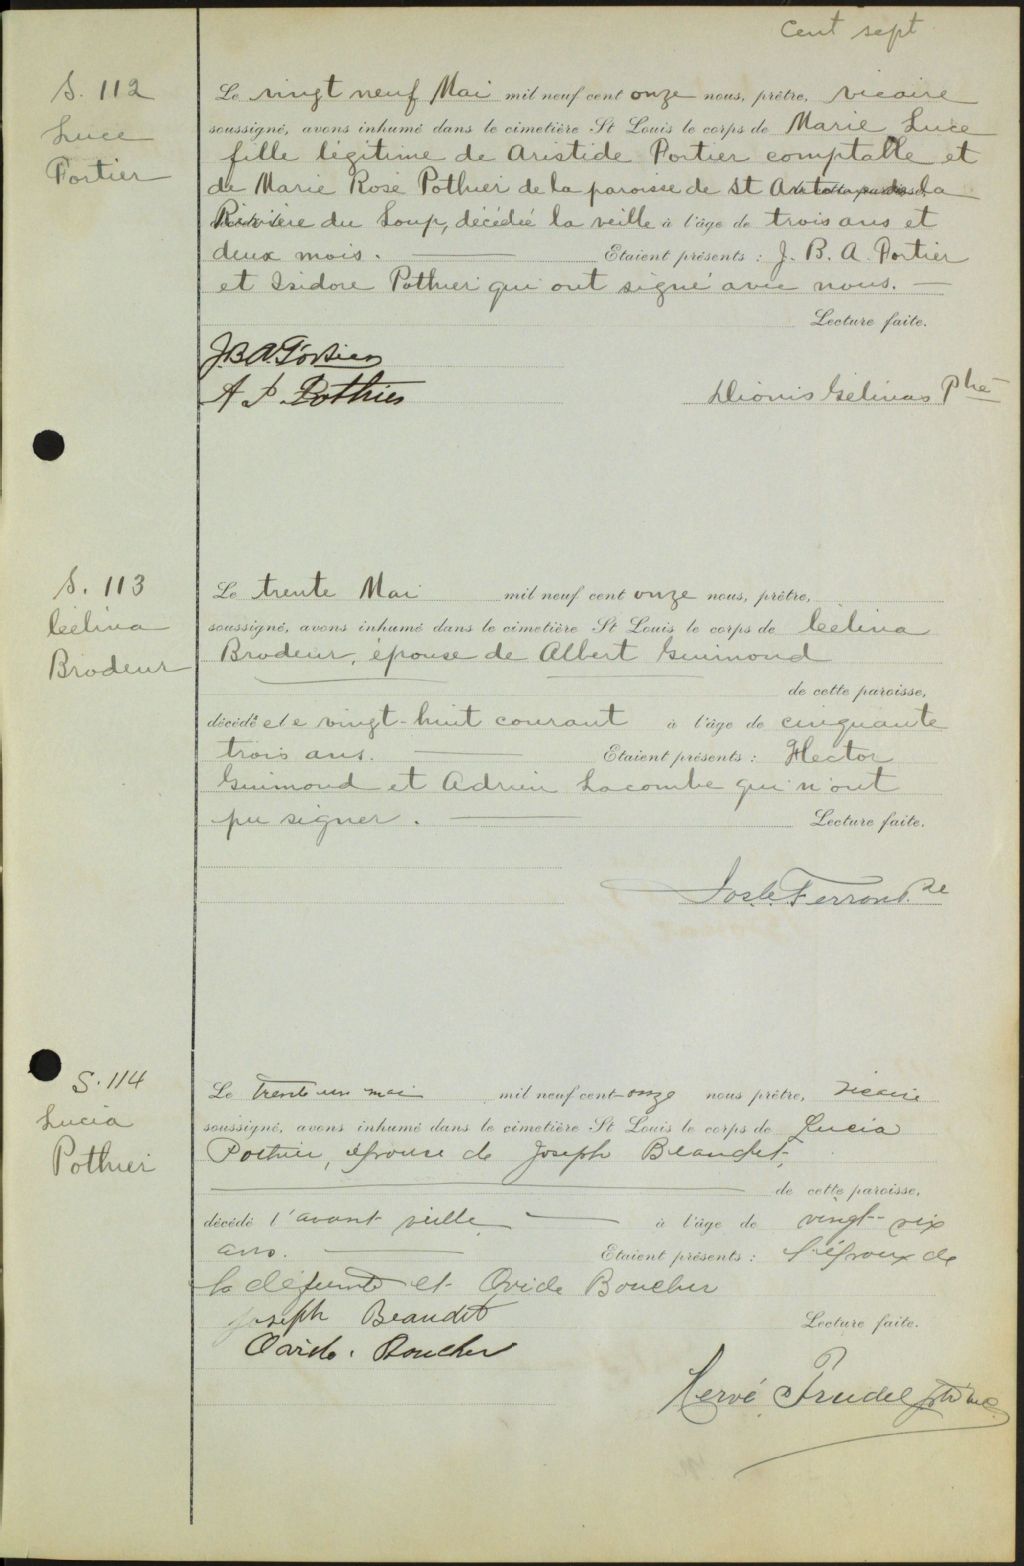 Cent sept
S. 112
Luce
Portier
Le vingt neuf Mai mil neuf cent onze nous, prêtre, vicaire
soussigné, avons inhumé dans le cimetière St Louis le corps de Marie Luce
fille légitime de Aristide Portier comptable et
de Marie Rose Pothier de la paroisse de St Antoine de la
Rivière du Loup, décédée la veille à l'âge de trois ans et
deux mois. Etaient présents : J. B. A. Portier
et Isidore Pothier qui ont signé avec nous.
Lecture faite.
J.B.A. Portier
A. I. Pothier
Dionis Gélinas Ptre
S. 113
Célina
Brodeur
Le trente Mai mil neuf cent onze nous, prêtre,
soussigné, avons inhumé dans le cimetière St Louis le corps de Célina
Brodeur, épouse de Albert Guimond
de cette paroisse,
décédée le vingt-huit courant à l'âge de cinquante
trois ans. Etaient présents : Hector
Guimond et Adrien Lacombe qui n'ont
pu signer. Lecture faite.
Jos. C. Ferron Ptre
S. 114
Lucia
Pothier
Le trente un mai mil neuf cent onze nous prêtre, vicaire
soussigné, avons inhumé dans le cimetière St Louis le corps de Lucia
Pothier, épouse de Joseph Beaudet,
de cette paroisse,
décédé l'avant veille à l'âge de vingt-six
ans. Etaient présents : l'époux de
la défunte et Ovide Boucher
Joseph Beaudet Lecture faite.
Ovide. Boucher
Hervé Trudel ptre vic.